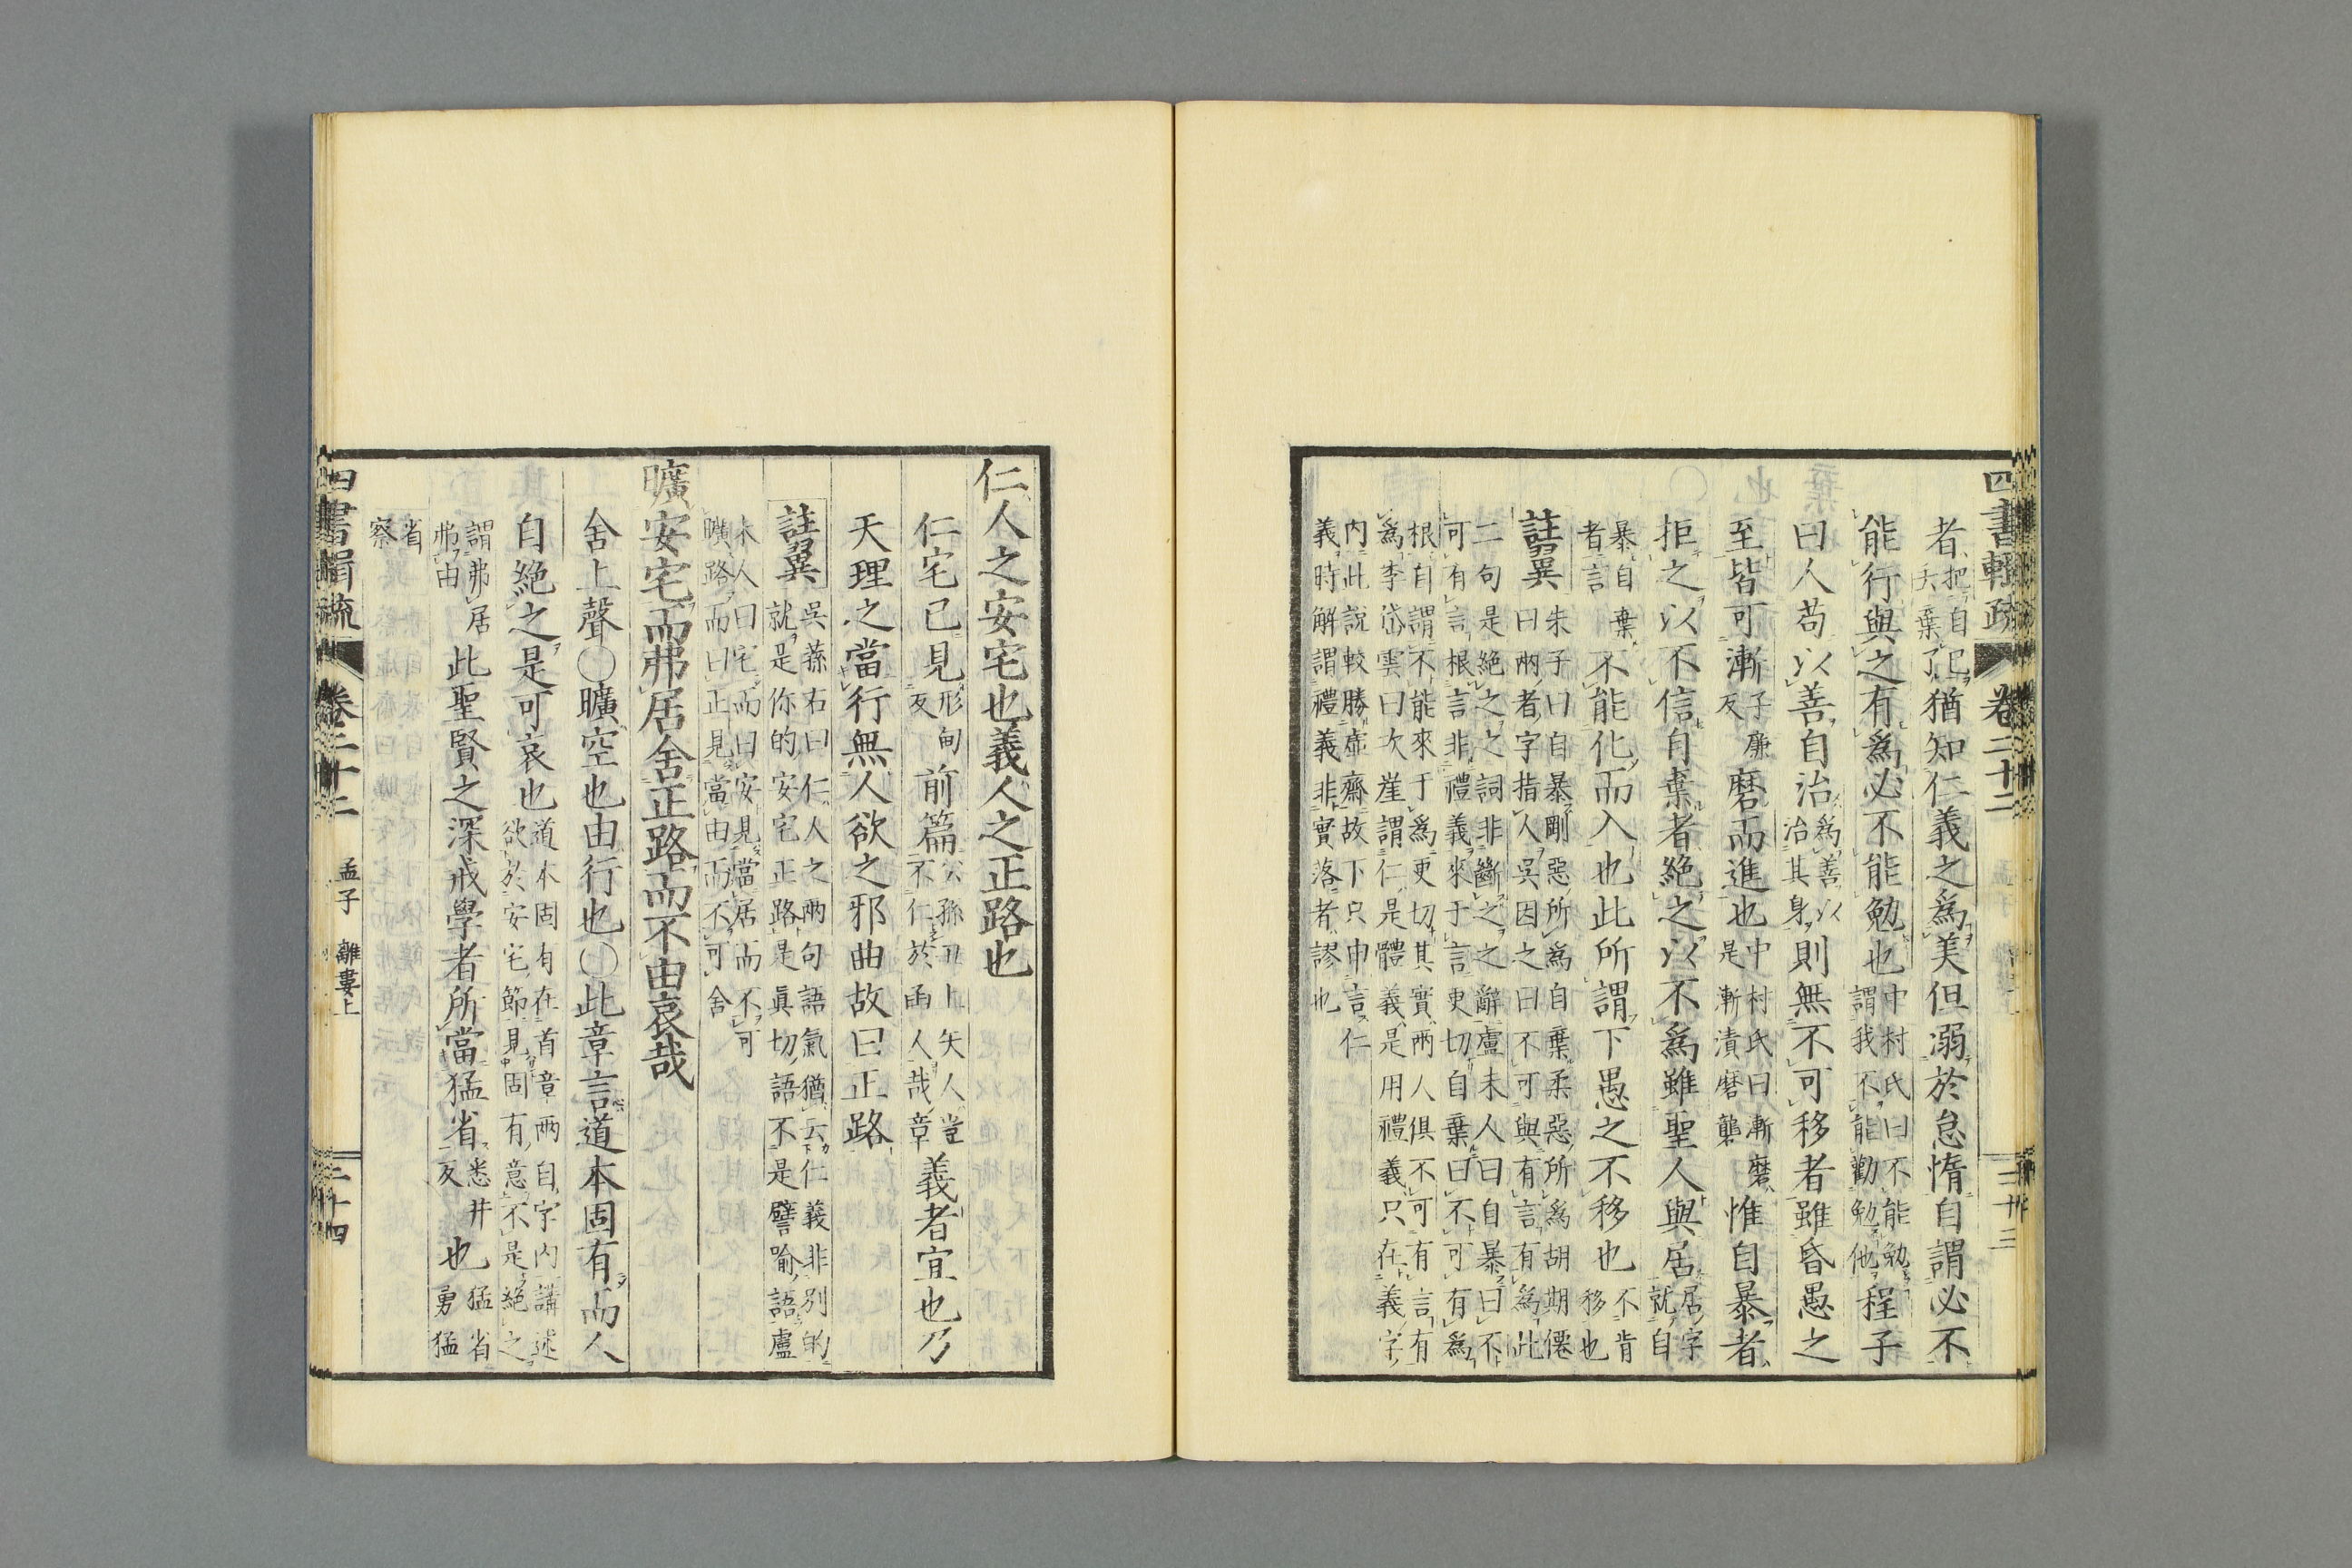 四書輯疏 卷二十二 二十三
者把自己丢棄了猶知仁義之爲美但溺於怠惰自謂必不
能行與之有爲必不能勉也中村氏曰不能勉謂我不能勸勉他程子
曰人苟以善自治爲善以治其身則無不可移者雖昏愚之
至皆可漸子廉反磨而進也中村氏曰漸磨是漸漬磨礱惟自暴者
拒之以不信自棄者絶之以不爲雖聖人與居居字就自
暴自棄者言不能化而入也此所謂下愚之不移也不肯移也
註翼朱子曰自暴剛惡所爲自棄柔惡所爲胡期僊曰兩者字指人吳因之曰不可與有言有爲此
二句是絶之之詞非斷之之辭盧未人曰自暴曰不可有言根言非禮義來于言更切自棄曰不可有爲
根自謂不能來于爲更切其實兩人俱不可有言有爲李岱雲曰次崖謂仁是體義是用禮義只在義字
內此說較勝虛齋故下只申言仁義時解謂禮義非實落者謬也
仁人之安宅也義人之正路也
仁宅已見形甸反前篇公孫丑上矢人豈不仁於函人哉章義者宜也乃
天理之當行無人欲之邪曲故曰正路
註翼吳蓀右曰仁人之兩句語氣猶云仁義非別的就是你的安宅正路是眞切語不是譬喻語盧
未人曰宅而曰安見當居而不可曠路而曰正見當由而不可舍
曠安宅而弗居舍正路而不由哀哉
舍上聲○曠空也由行也○此章言道本固有而人
自絶之是可哀也道本固有在首章兩自字內講述欲於安宅節見固有意不是絶之
謂弗居弗由此聖賢之深戒學者所當猛省悉井反也猛省勇猛
省察
四書輯疏 卷二十二 孟子 離婁上 二十四